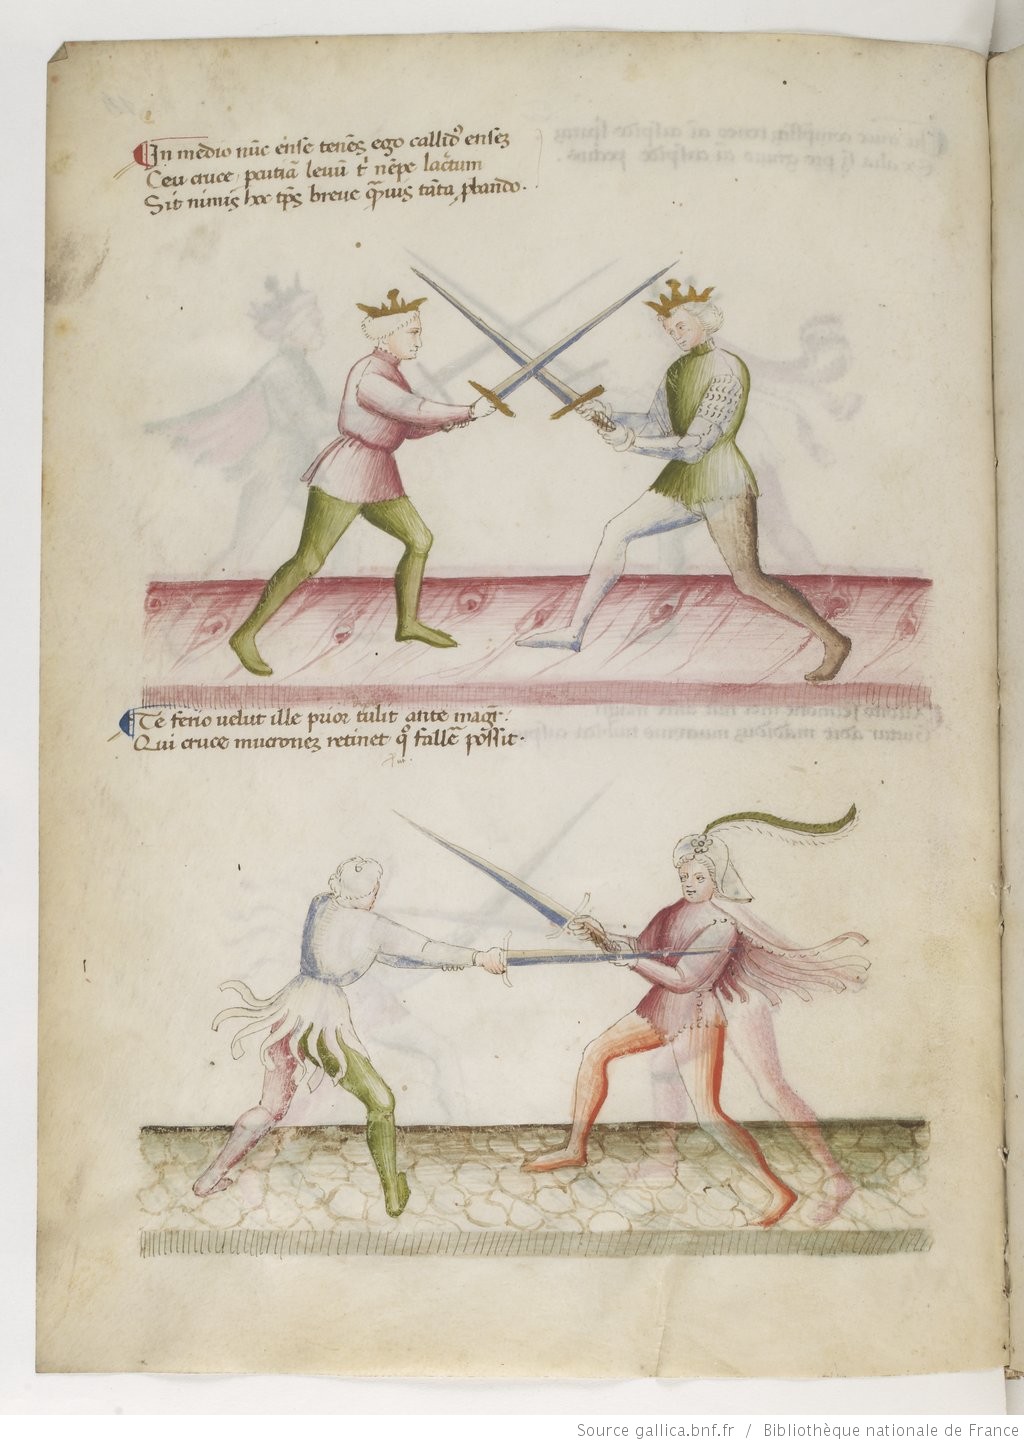 In medio nūc ēnse tenēs ego callidꝰ ensez
Ceu cruce, pcutiā levū t' nēpe lac̄tum
Sit nimis hoc tp̄s breve qāvis tāta pbando.
Te ferio velut ille prior tulit ante magr̄.
Qui cruce mucronez retinet qͦ fallē̄ pōssit.
Source gallica.bnf.fr / Bibliothèque nationale de France